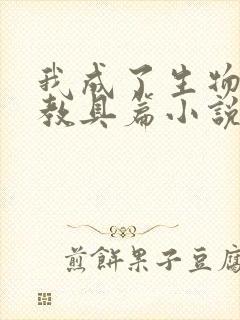 我成了生物
教具篇小說
煎餅果子豆腐